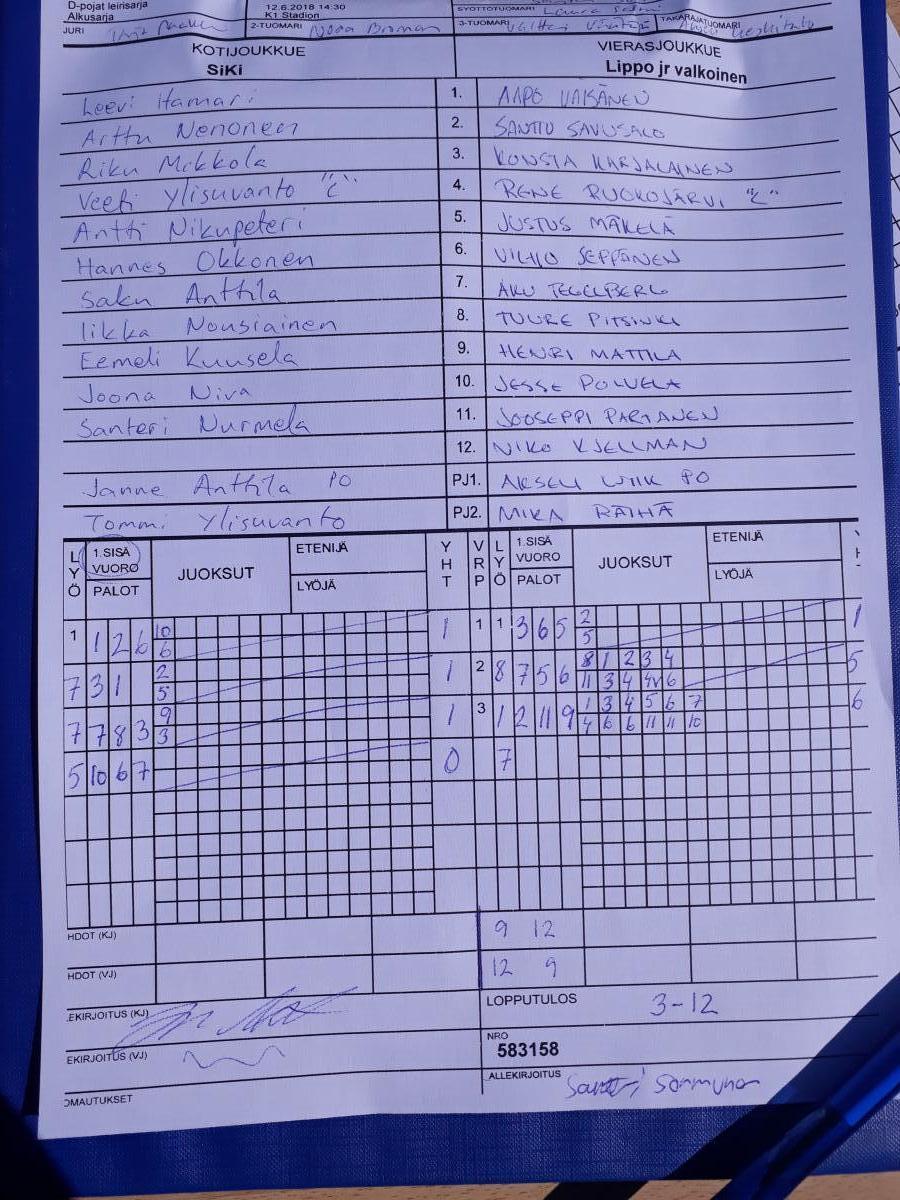 D-pojat leirisarja
Alkusarja
12.6.2018 14:30
K1 Stadion
SYÖTTÖTUOMARI
JURI
2-TUOMARI Noora
3-TUOMARI
TAKARAJATUOMARI
KOTIJOUKKUE VIERASJOUKKUE
SiKi Lippo jr valkoinen
Leevi Hamari 1. AAPO VÄISÄNEN
Arttu Nenonen 2. SANTTU SAVUSALO
Riku Mikkola 3. KONSTA KARJALAINEN
Veeti Ylisuvanto "C" 4. RENE RUOKOJÄRVI "C"
Antti Nikupeteri 5. JUSTUS MÄKELÄ
Hannes Okkonen 6. VILHO SEPPÄNEN
Saku Anttila 7. AKU TEGELBERG
Iikka Nousiainen 8. TUURE PITSINKI
Eemeli Kuusela 9. HENRI MATTILA
Joona Niva 10. JESSE POLVELA
Santeri Nurmela 11. JOOSEPPI PARTANEN
12. NIKO KJELLMAN
Janne Anttila PO PJ1. AKSELI WIIK PO
Tommi Ylisuvanto PJ2. MIKA RÄIHÄ
LYÖ 1.SISÄ VUORO PALOT JUOKSUT ETENIJÄ LYÖJÄ YHT VRP LYÖ 1.SISÄ VUORO PALOT JUOKSUT ETENIJÄ LYÖJÄ
1 1 2 6 10 1 1 1 3 6 5 2 1
6 5
7 3 1 2 1 2 8 7 5 6 8 1 2 3 4 5
5 11 3 4 4v 6
7 7 8 3 9 1 3 1 2 11 9 1 3 4 5 6 7 6
3 4 6 6 11 11 10
5 10 6 7 0 7
HDOT (KJ) 9 12
HDOT (VJ) 12 9
EKIRJOITUS (KJ)
LOPPUTULOS 3-12
EKIRJOITUS (VJ)
NRO
583158
OMAUTUKSET
ALLEKIRJOITUS